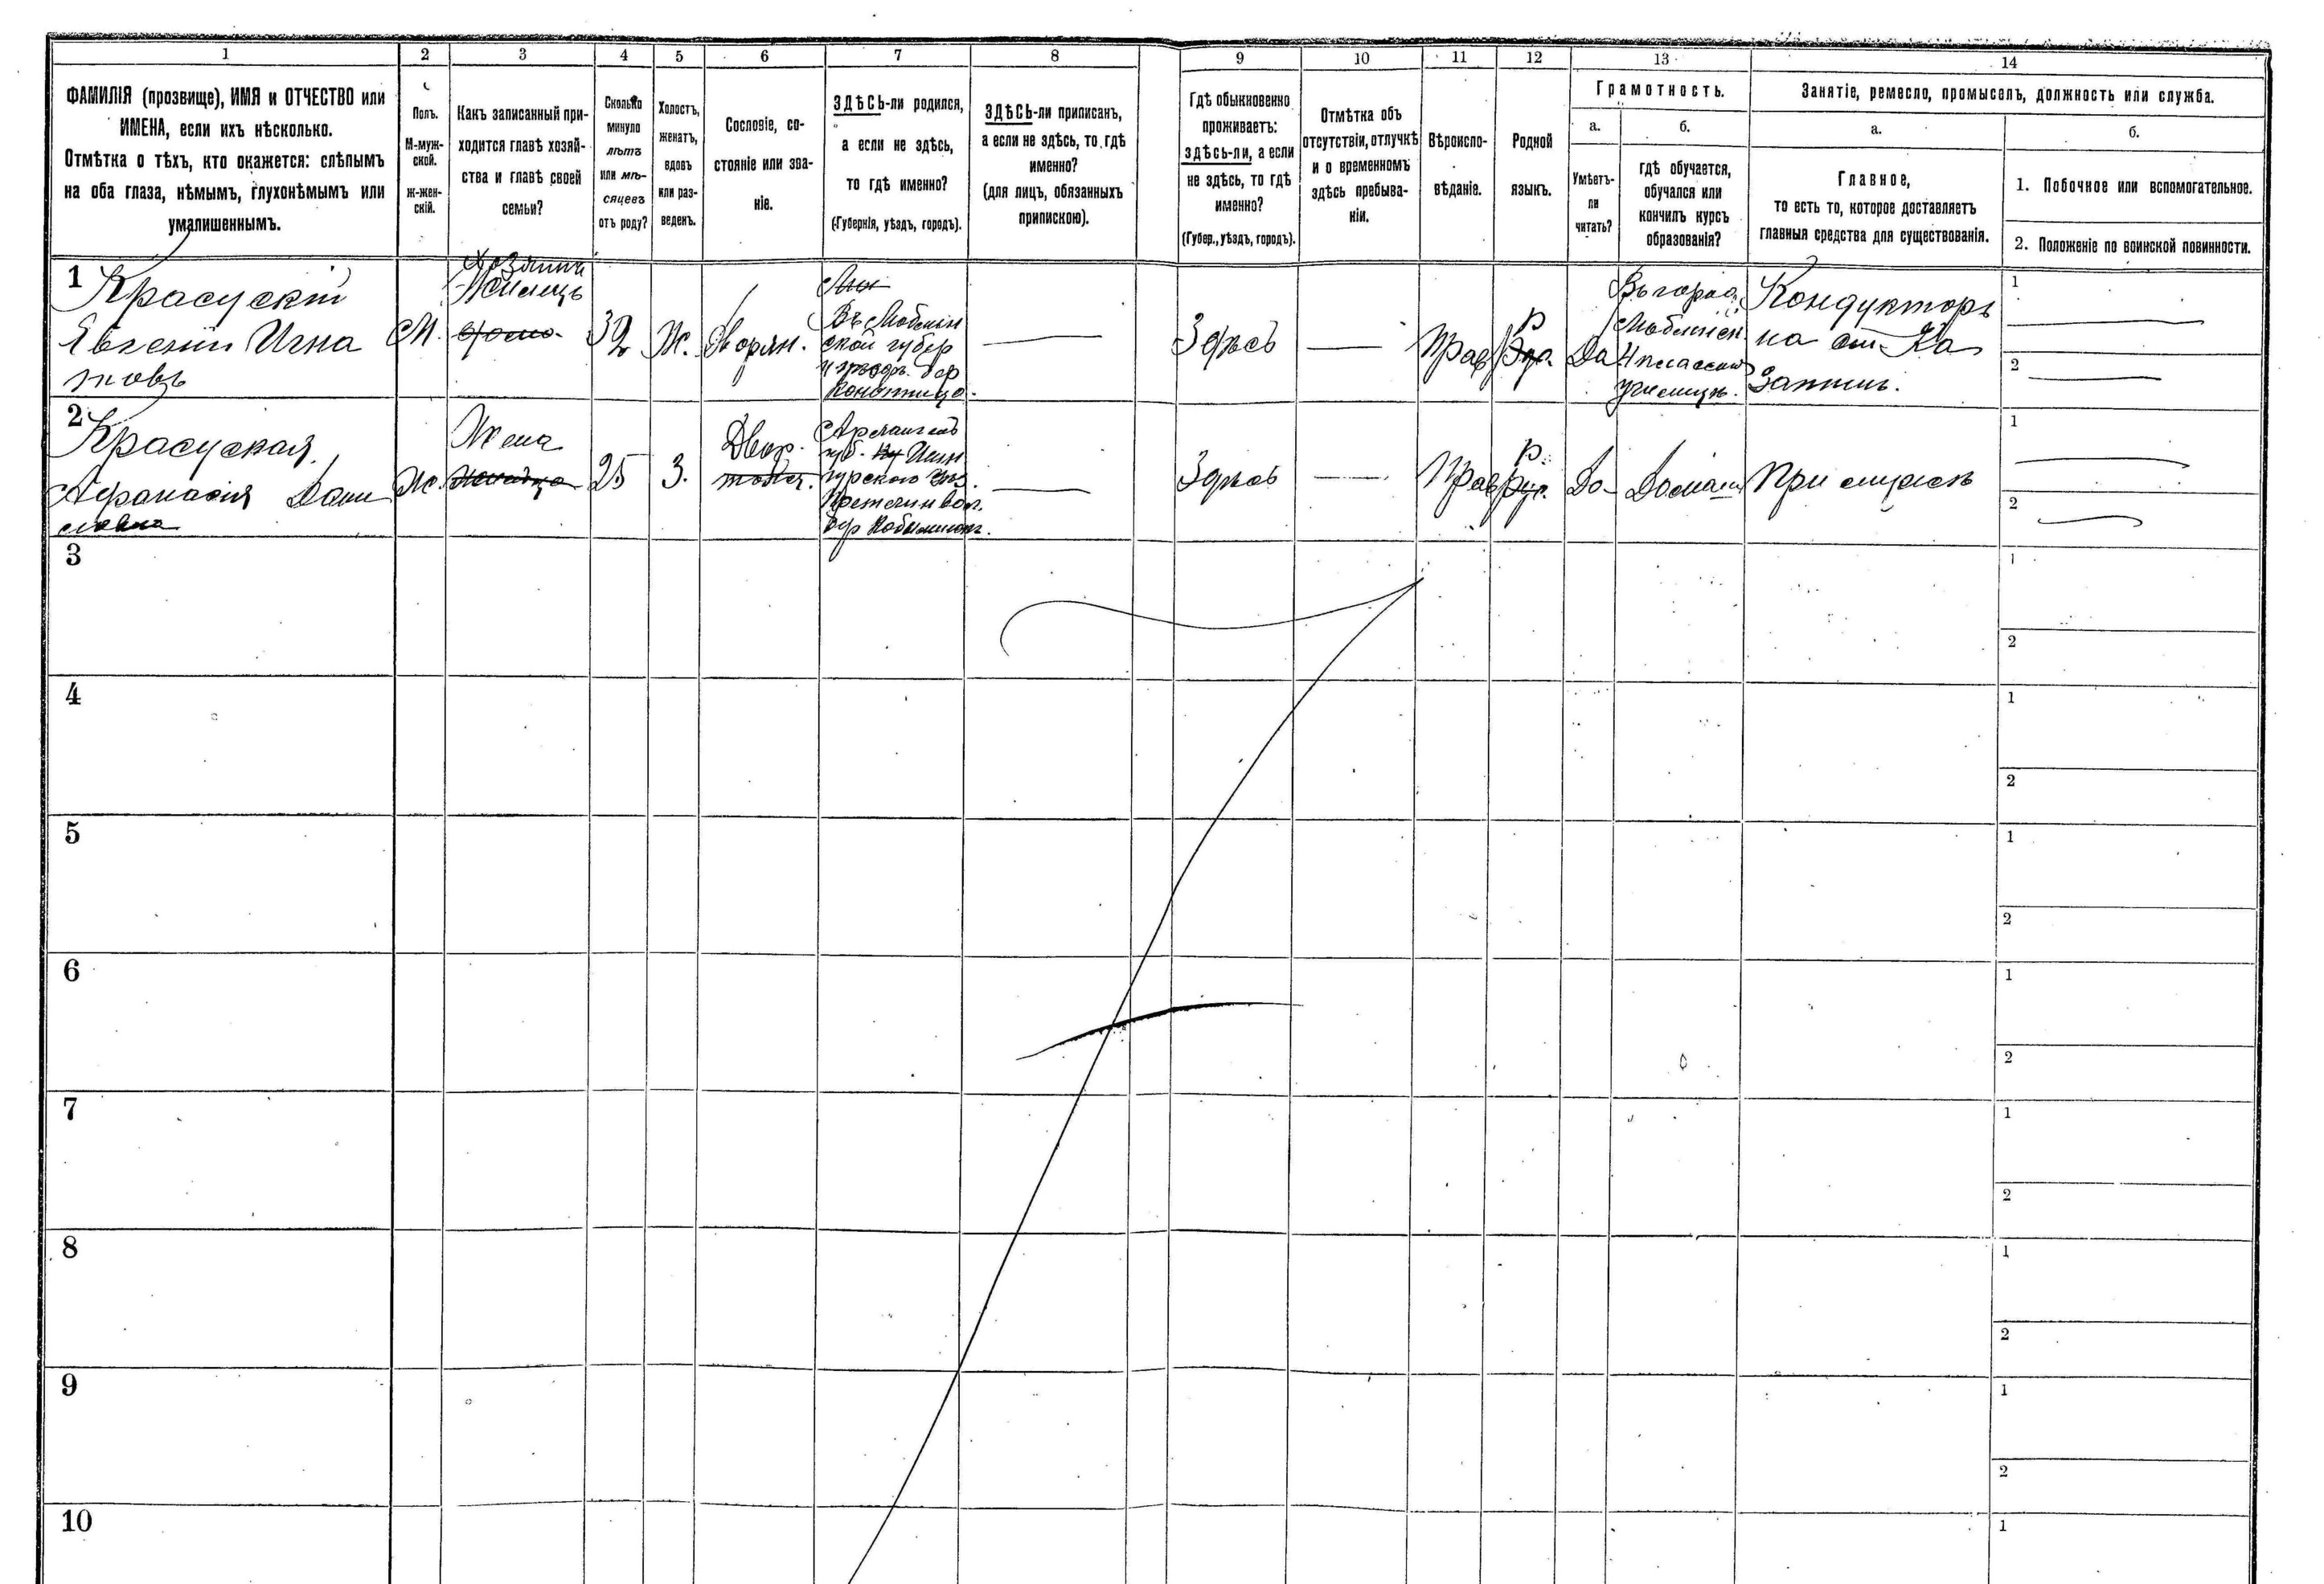 1 2 3 4 5 6 7 8 9 10 11 12 13 14
ФАМИЛІЯ (прозвище), ИМЯ и ОТЧЕСТВО или
ИМЕНА, если ихъ нѣсколько.
Отмѣтка о тѣхъ, кто окажется: слѣпымъ
на оба глаза, нѣмымъ, глухонѣмымъ или
умалишеннымъ.
Полъ.
М-муж-
ской.
Ж-жен-
скій.
Какъ записанный при-
ходится главѣ хозяй-
ства и главѣ своей
семьи?
Сколько
минуло
лѣтъ
или мѣ-
сяцевъ
отъ роду?
Холостъ,
женатъ,
вдовъ
или раз-
веденъ.
Сословіе, со-
стояніе или зва-
ніе.
ЗДѢСЬ-ли родился,
а если не здѣсь,
то гдѣ именно?
(Губернія, уѣздъ, городъ).
ЗДѢСЬ-ли приписанъ,
а если не здѣсь, то гдѣ
именно?
(для лицъ, обязанныхъ
припискою).
Гдѣ обыкновенно
проживаетъ:
здѣсь-ли, а если
не здѣсь, то гдѣ
именно?
(Губер., уѣздъ, городъ).
Отмѣтка объ
отсутствіи, отлучкѣ
и о временномъ
здѣсь пребыва-
ніи.
Вѣроиспо-
вѣданіе.
Родной
языкъ.
Грамотность.
а.
Умѣетъ-
ли
читать?
б.
гдѣ обучается,
обучался или
кончилъ курсъ
образованія?
Занятіе, ремесло, промыселъ, должность или служба.
а.
Главное,
то есть то, которое доставляетъ
главныя средства для существованія.
б.
1. Побочное или вспомогательное.
2. Положеніе по воинской повинности.
1
Красускій
Евгеній Игна
товъ
М.
Хозяинъ
Жилецъ
32
Ж.
Дворян.
Въ Люблин
ской губер
Здѣсь
Прав
Р
Да
Въ город
Люблинск
4 классном
училищѣ.
Кондукторъ
на ст. Ка
зат
1
2
2
Красуская
Афанасія Дани
ловна
Ж.
Жена
25
З.
Двор.
Архангель
губ.
Здѣсь
Прав
Р.
Да
Домаш
При мужѣ
1
2
3
1
2
4
1
2
5
1
2
6
1
2
7
1
2
8
1
2
9
1
2
10
1